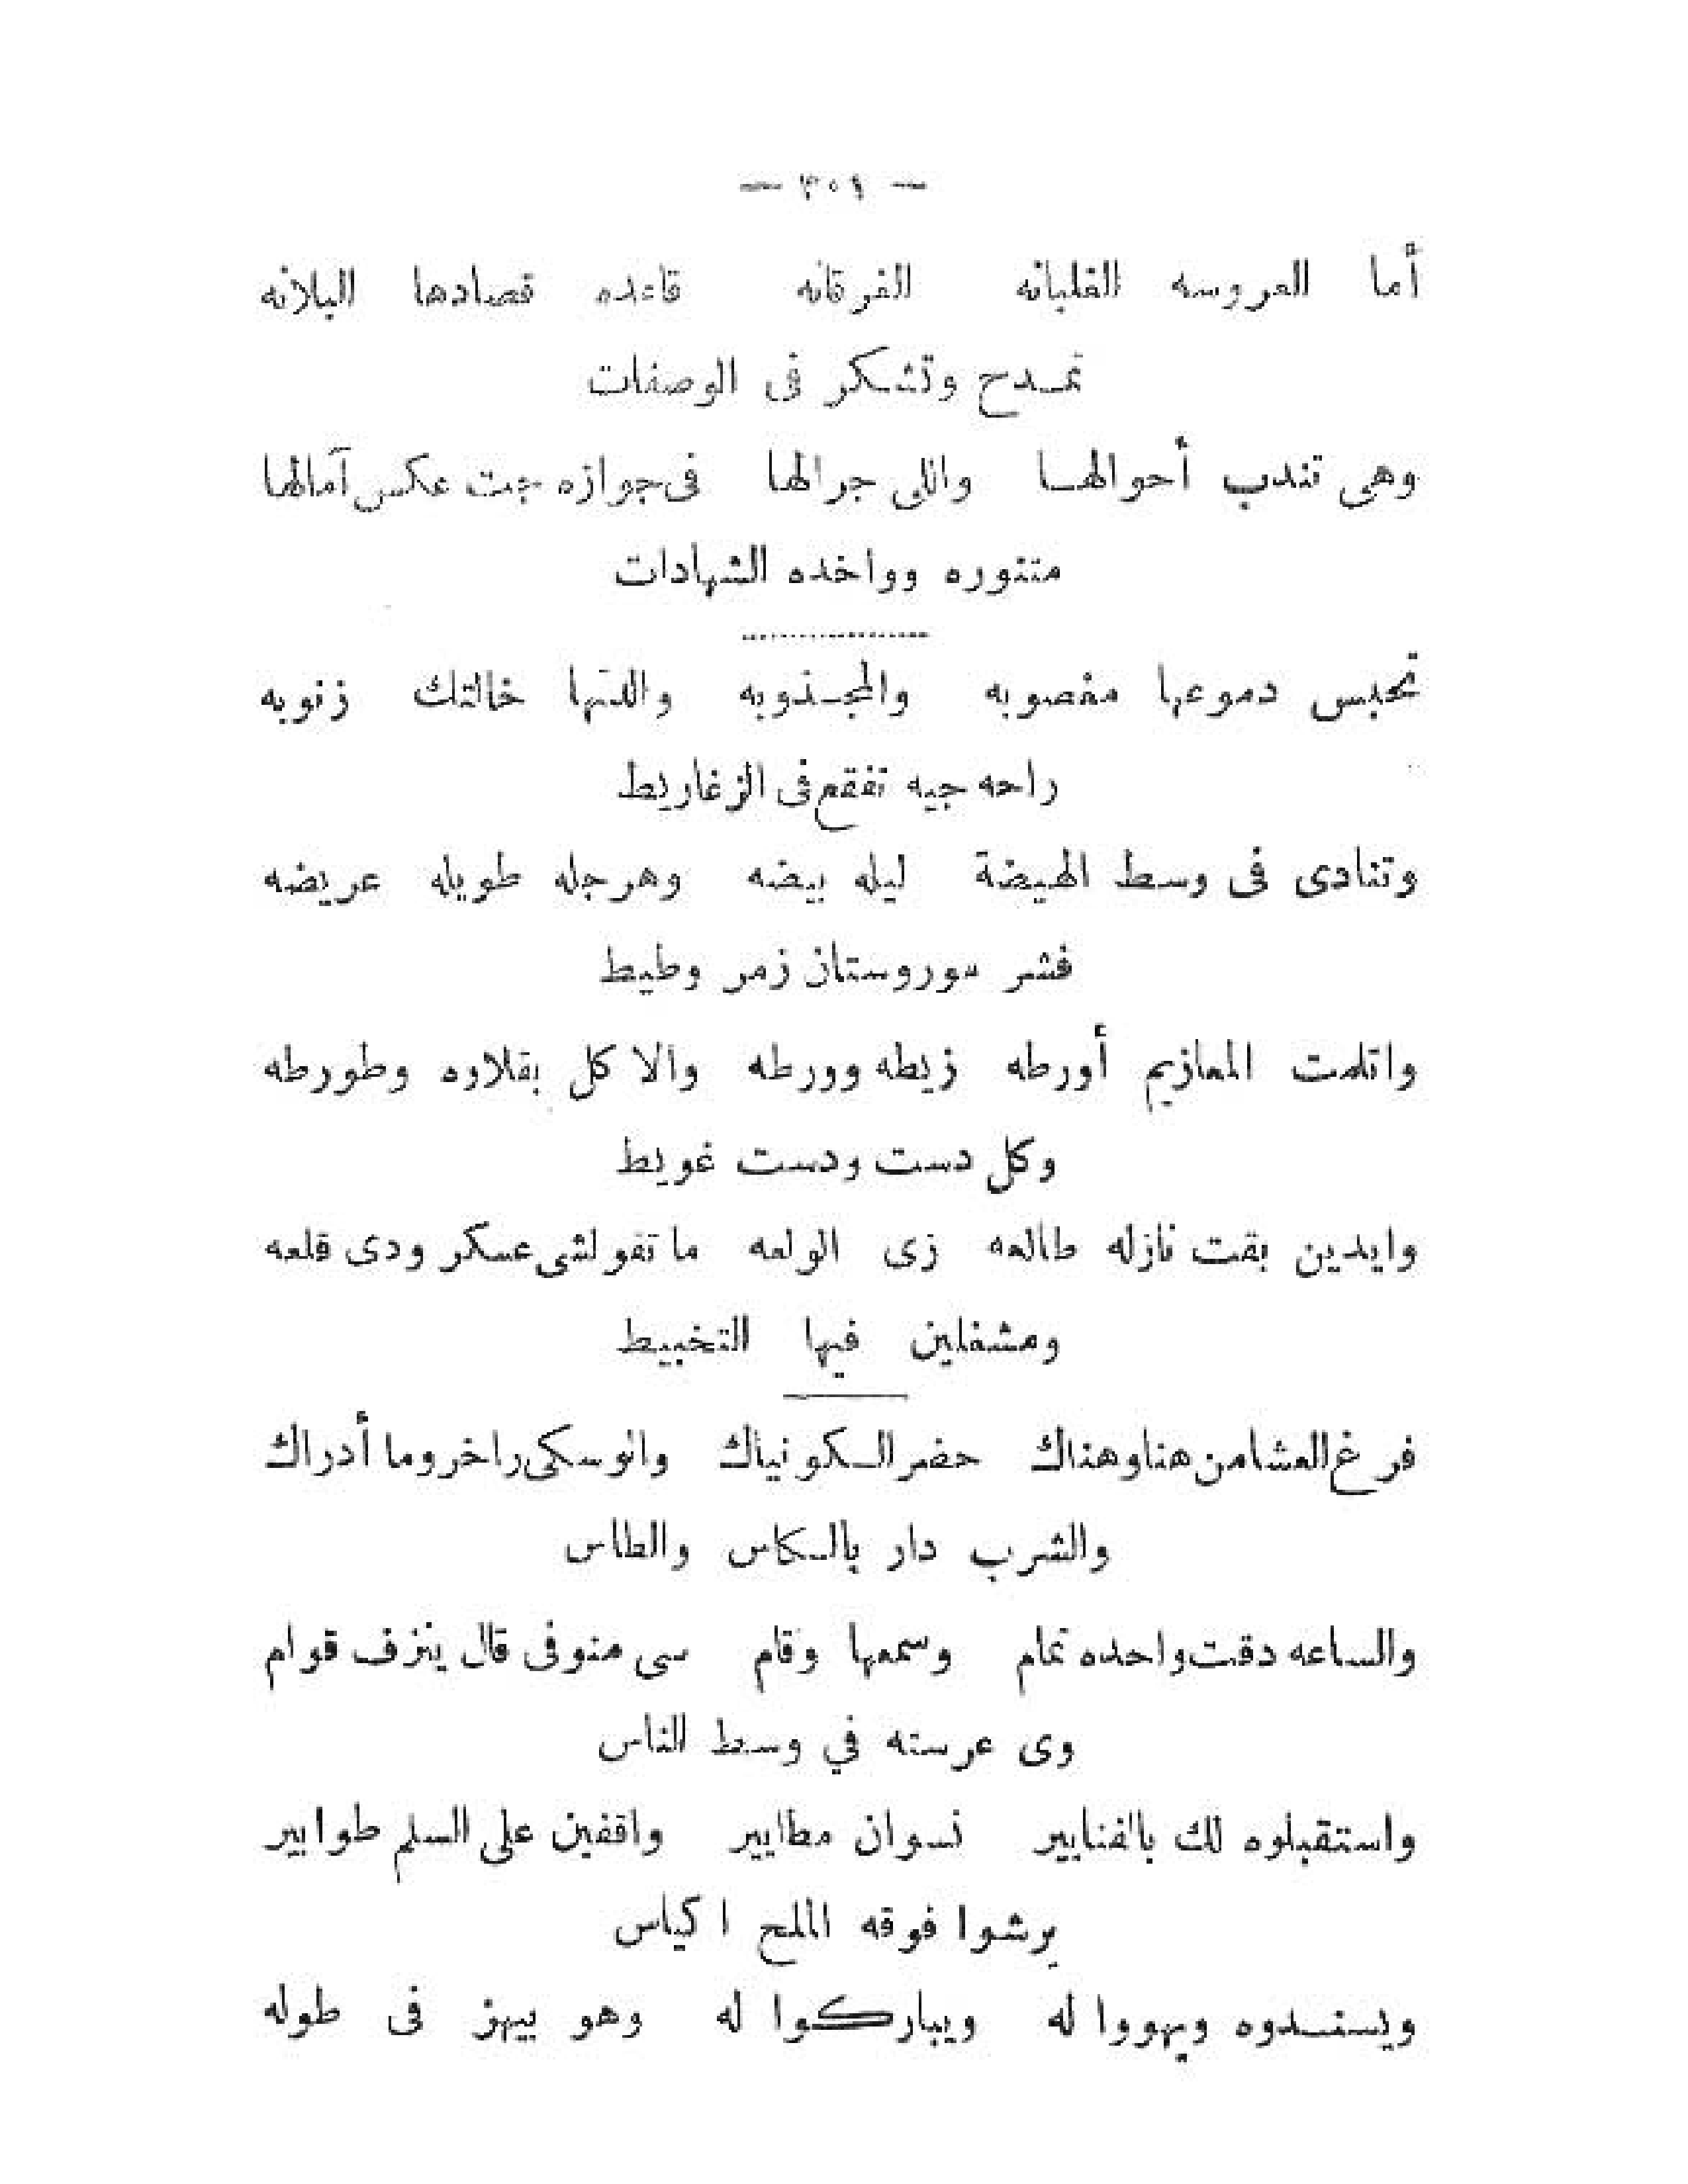 — ٣٠٩ —
أما العروسه الغلبانه الفرقانه قاعده قصادها البلانه
تمدح وتشكر فى الوصفات
وهى تندب أحوالها واللى جرالها فى جوازه جت عكس آمالها
متنوره وواخده الشهادات
تحبس دموعها مغصوبه والمجذوبه خالتك زنوبه
راحه جيه تفقع فى الزغاريط
وتنادى فى وسط الهيضة ليله بيضه وهرجله طويله عريضه
فشر سوروستان زمر وطيط
واتلمت المعازيم أورطه زيطه وورطه والاكل بقلاوه وطورطه
وكل دست ودست غويط
وايدين بقت نازله طالعه زى الولعه ما تقولشى عسكر ودى قلعه
ومشغلين فيها التخبيط
فرغ العشا من هنا وهناك حضر الكونياك والوسكى راخر وما أدراك
والشرب دار بالكاس والطاس
والساعه دقت واحده تمام وسمعها وقام سى منوفى قال ينزف قوام
وى عرسته في وسط الناس
واستقبلوه لك بالفنايير نسوان مطايير واقفين على السلم طوابير
يرشوا فوقه الملح اكياس
ويسندوه ويهووا له ويباركوا له وهو بيهز فى طوله